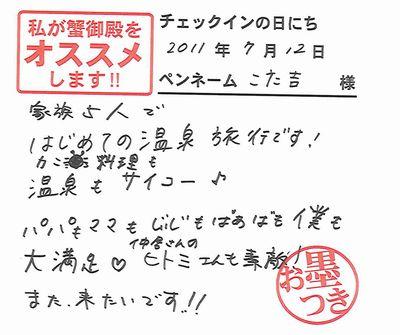 私が蟹御殿を
オススメ
します!!
チェックインの日にち
2011年7月12日
ペンネーム こた吉 様
家族5人で
はじめての温泉旅行です!
カニ料理も
温泉もサイコー♪
パパもママもじぃじもばぁばも僕も
大満足♡仲居さんのヒトミさんも素敵!
また、来たいです!!
お墨つき